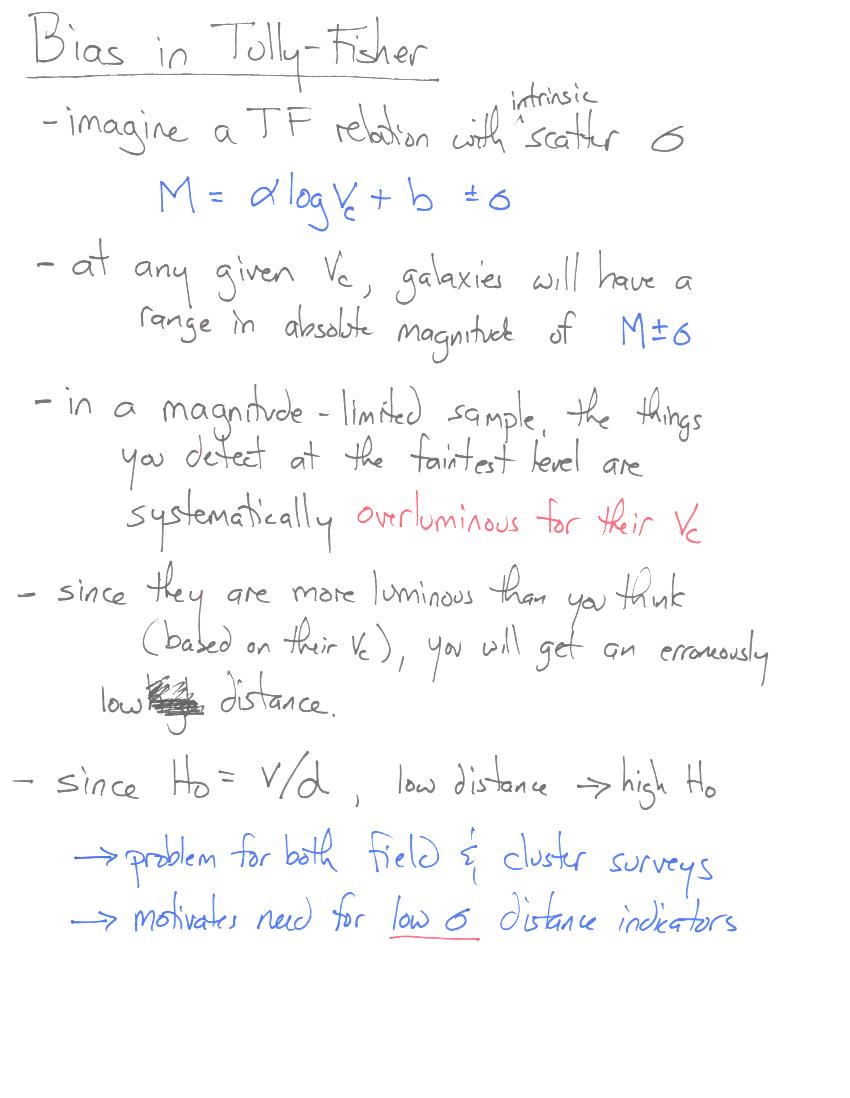 Bias in Tully-Fisher
- imagine a TF relation with intrinsic scatter σ
M = α log Vc + b ± σ
- at any given Vc, galaxies will have a
range in absolute magnitude of M±σ
- in a magnitude-limited sample, the things
you detect at the faintest level are
systematically overluminous for their Vc
- since they are more luminous than you think
(based on their Vc), you will get an erroneously
low distance.
- since Ho = v/d, low distance → high Ho
→ problem for both field & cluster surveys
→ motivates need for low σ distance indicators